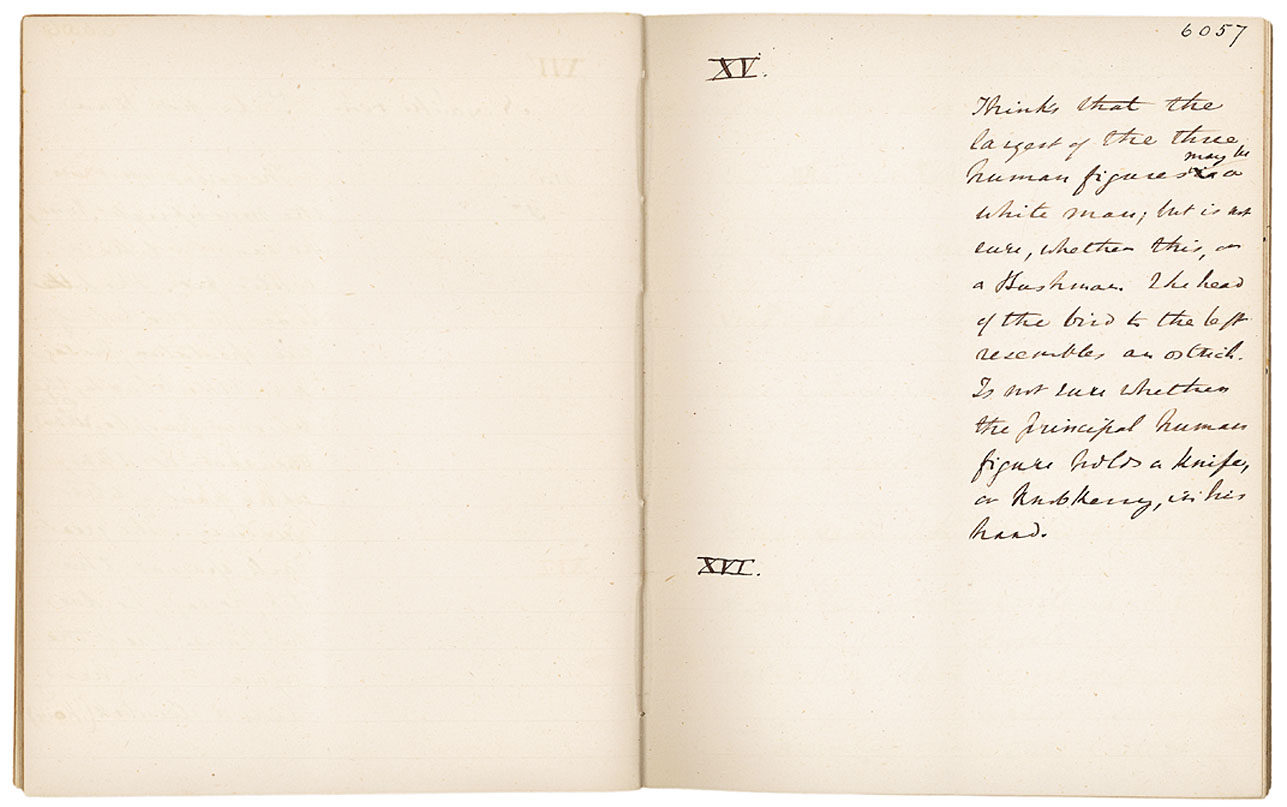 6057
XV.
Thinks that the
largest of the three
may be
human figures is a
white man; but is not
sure, whether this, or
a Bushman. The head
of the bird to the left
resembles an ostrich.
Is not sure whether
the principal human
figure holds a knife,
or Knobkerry, in his
hand.
XVI.